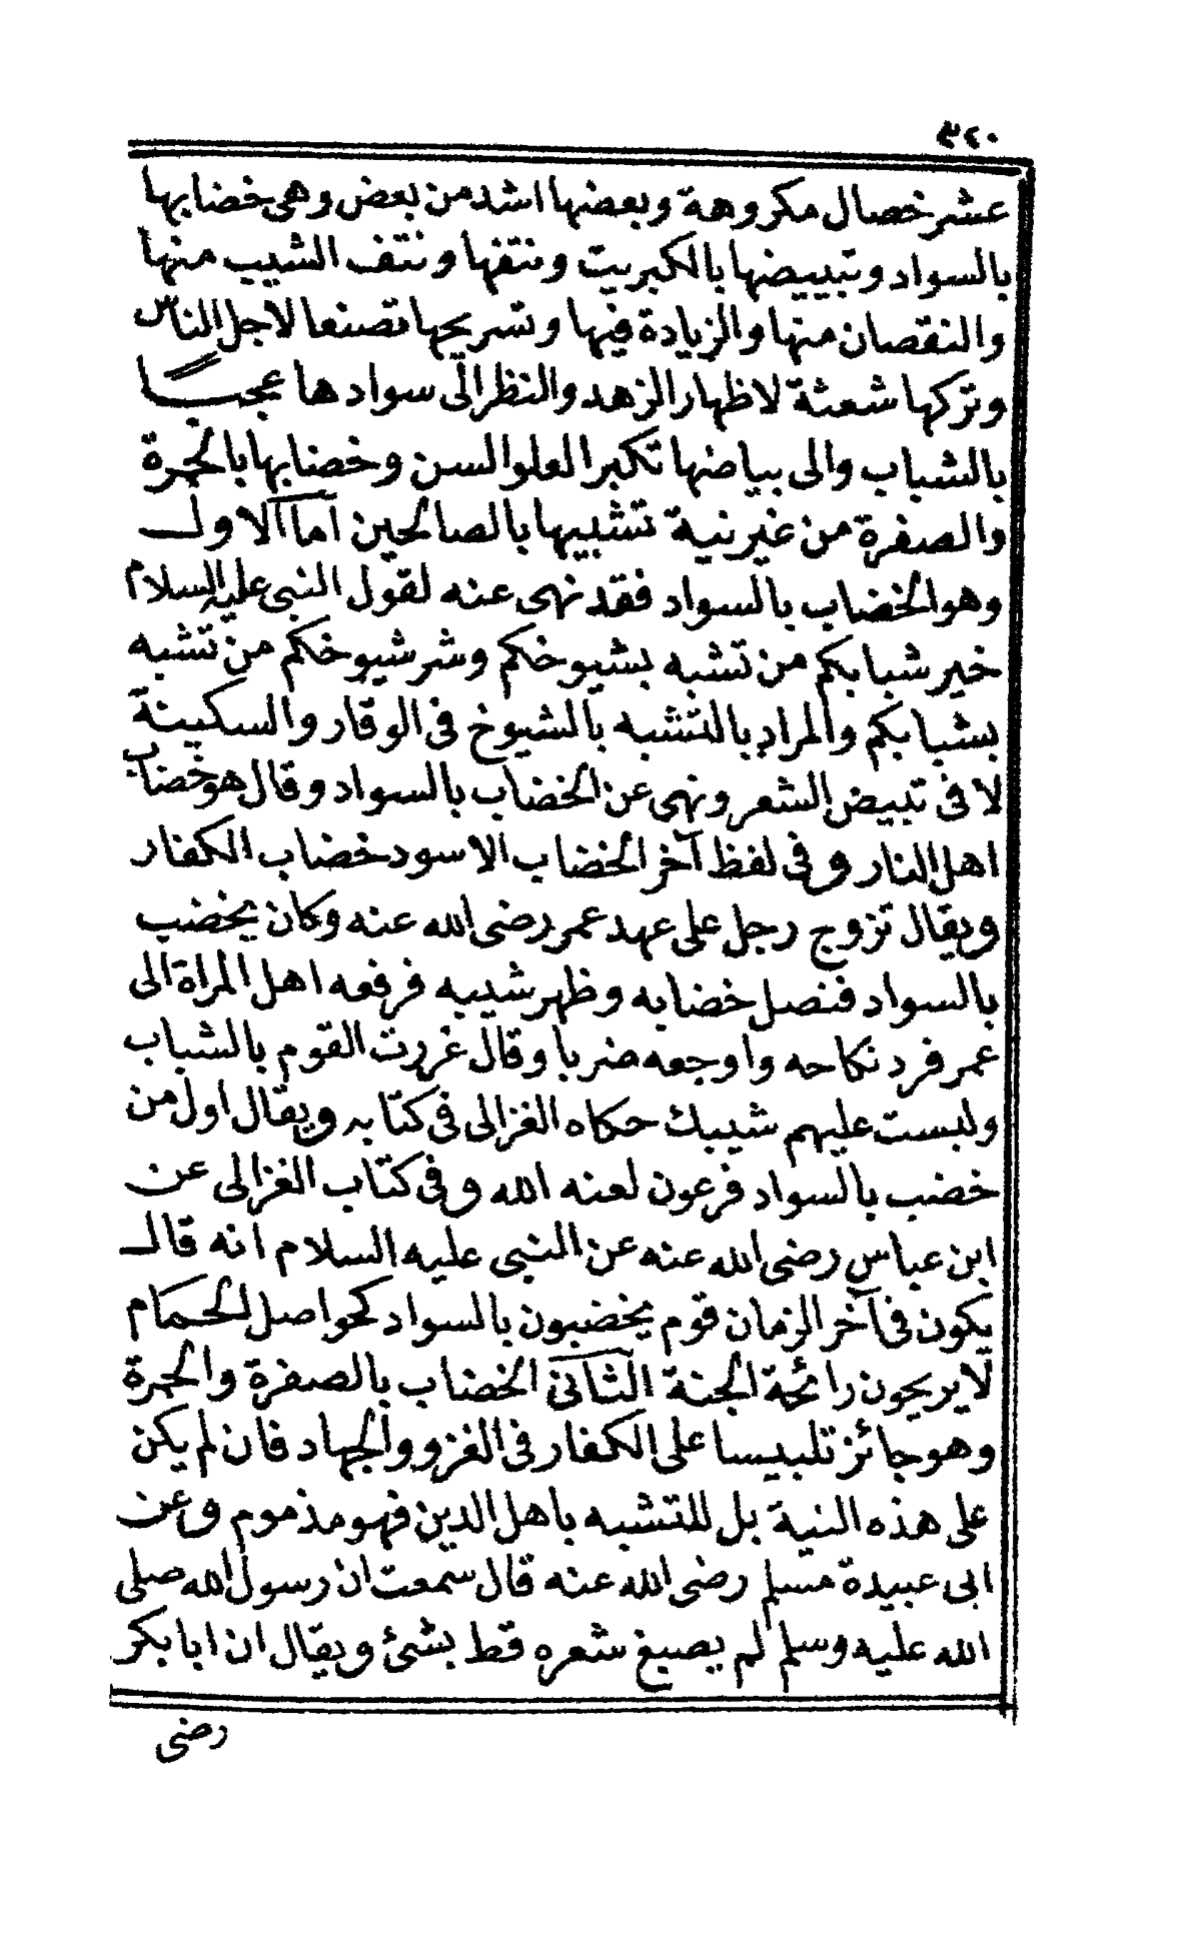 ٣٤٠
عشر خصال مكروهة وبعضها اشد من بعض وهى خضابها
بالسواد وتبييضها بالكبريت ونتفها ونتف الشيب منها
والنقصان منها والزيادة فيها وتسريحها تصنعا لاجل الناس
وتركها شعثة لاظهار الزهد والنظر الى سوادها عجبًا
بالشباب والى بياضها تكبرا لعلو السن وخضابها بالحمرة
والصفرة من غير نية تشبيها بالصالحين اما الاول
وهو الخضاب بالسواد فقد نهى عنه لقول النبى عليه السلام
خير شبابكم من تشبه بشيوخكم وشر شيوخكم من تشبه
بشبابكم والمراد بالتشبه بالشيوخ فى الوقار والسكينة
لا فى تبييض الشعر ونهى عن الخضاب بالسواد وقال هو خضاب
اهل النار وفى لفظ آخر الخضاب الاسود خضاب الكفار
ويقال تزوج رجل على عهد عمر رضى الله عنه وكان يخضب
بالسواد فنصل خضابه وظهر شيبه فرفعه اهل المراة الى
عمر فرد نكاحه واوجعه ضربا وقال غررت القوم بالشباب
ولبست عليهم شيبك حكاه الغزالى فى كتابه ويقال اول من
خضب بالسواد فرعون لعنه الله وفى كتاب الغزالى عن
ابن عباس رضى الله عنه عن النبى عليه السلام انه قال
يكون فى آخر الزمان قوم يخضبون بالسواد كحواصل الحمام
لا يريحون رائحة الجنة الثانى الخضاب بالصفرة والحمرة
وهو جائز تلبيسا على الكفار فى الغزو والجهاد فان لم يكن
على هذه النية بل للتشبه باهل الدين فهو مذموم وعن
ابى عبيدة مسلم رضى الله عنه قال سمعت ان رسول الله صلى
الله عليه وسلم لم يصبغ شعره قط بشئ ويقال ان ابا بكر
رضى